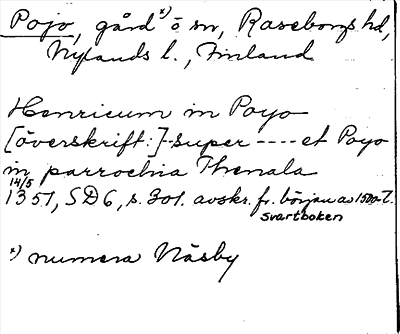 Pojo, gård *) ō sn, Raseborgs hd,
Nylands l., Finland
Henricum in Poyo
[överskrift:]-super ---- et Poyo
in parrochia Thenala
14/5
1351, SD6, s. 301. avskr. fr. början av 1500-t.
svartboken
*) numera Näsby